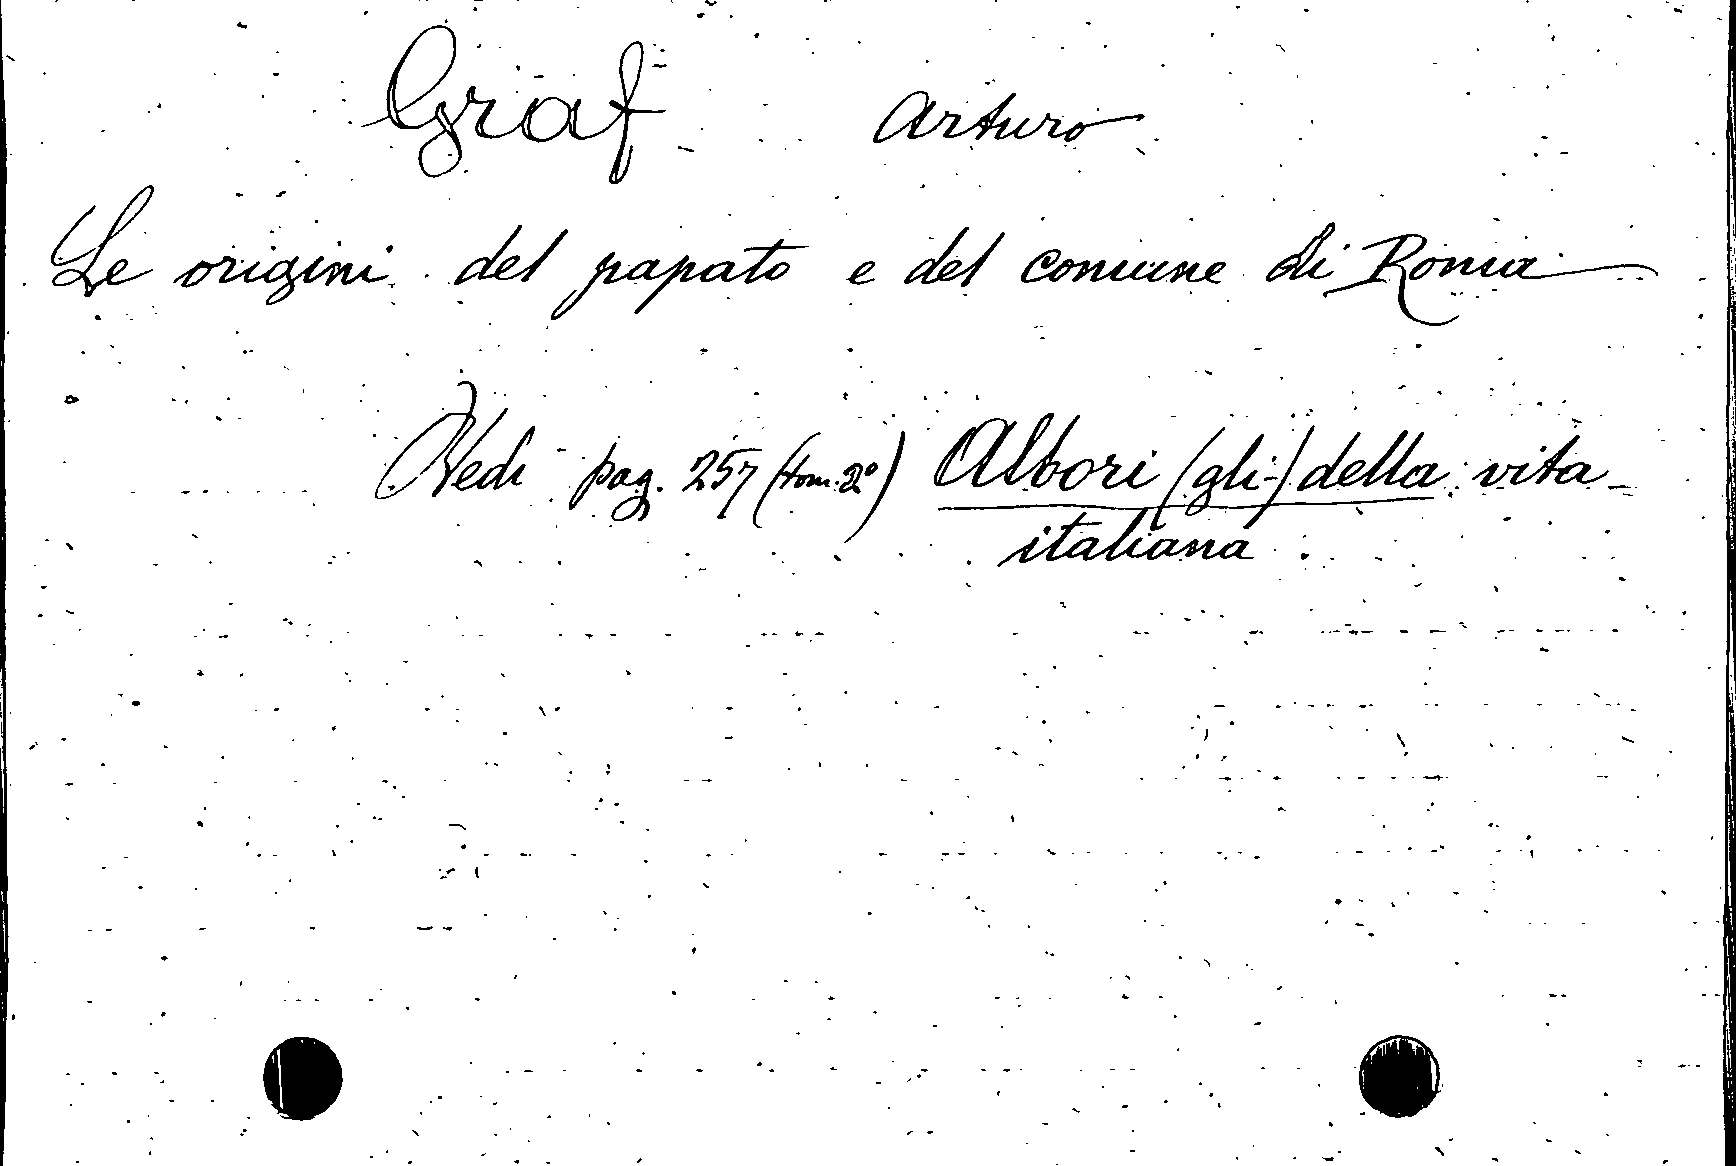 Graf Arturo
Le origini del papato e del comune di Roma
Vedi pag. 257 (tom. 2º) Albori (gli-) della vita
italiana.